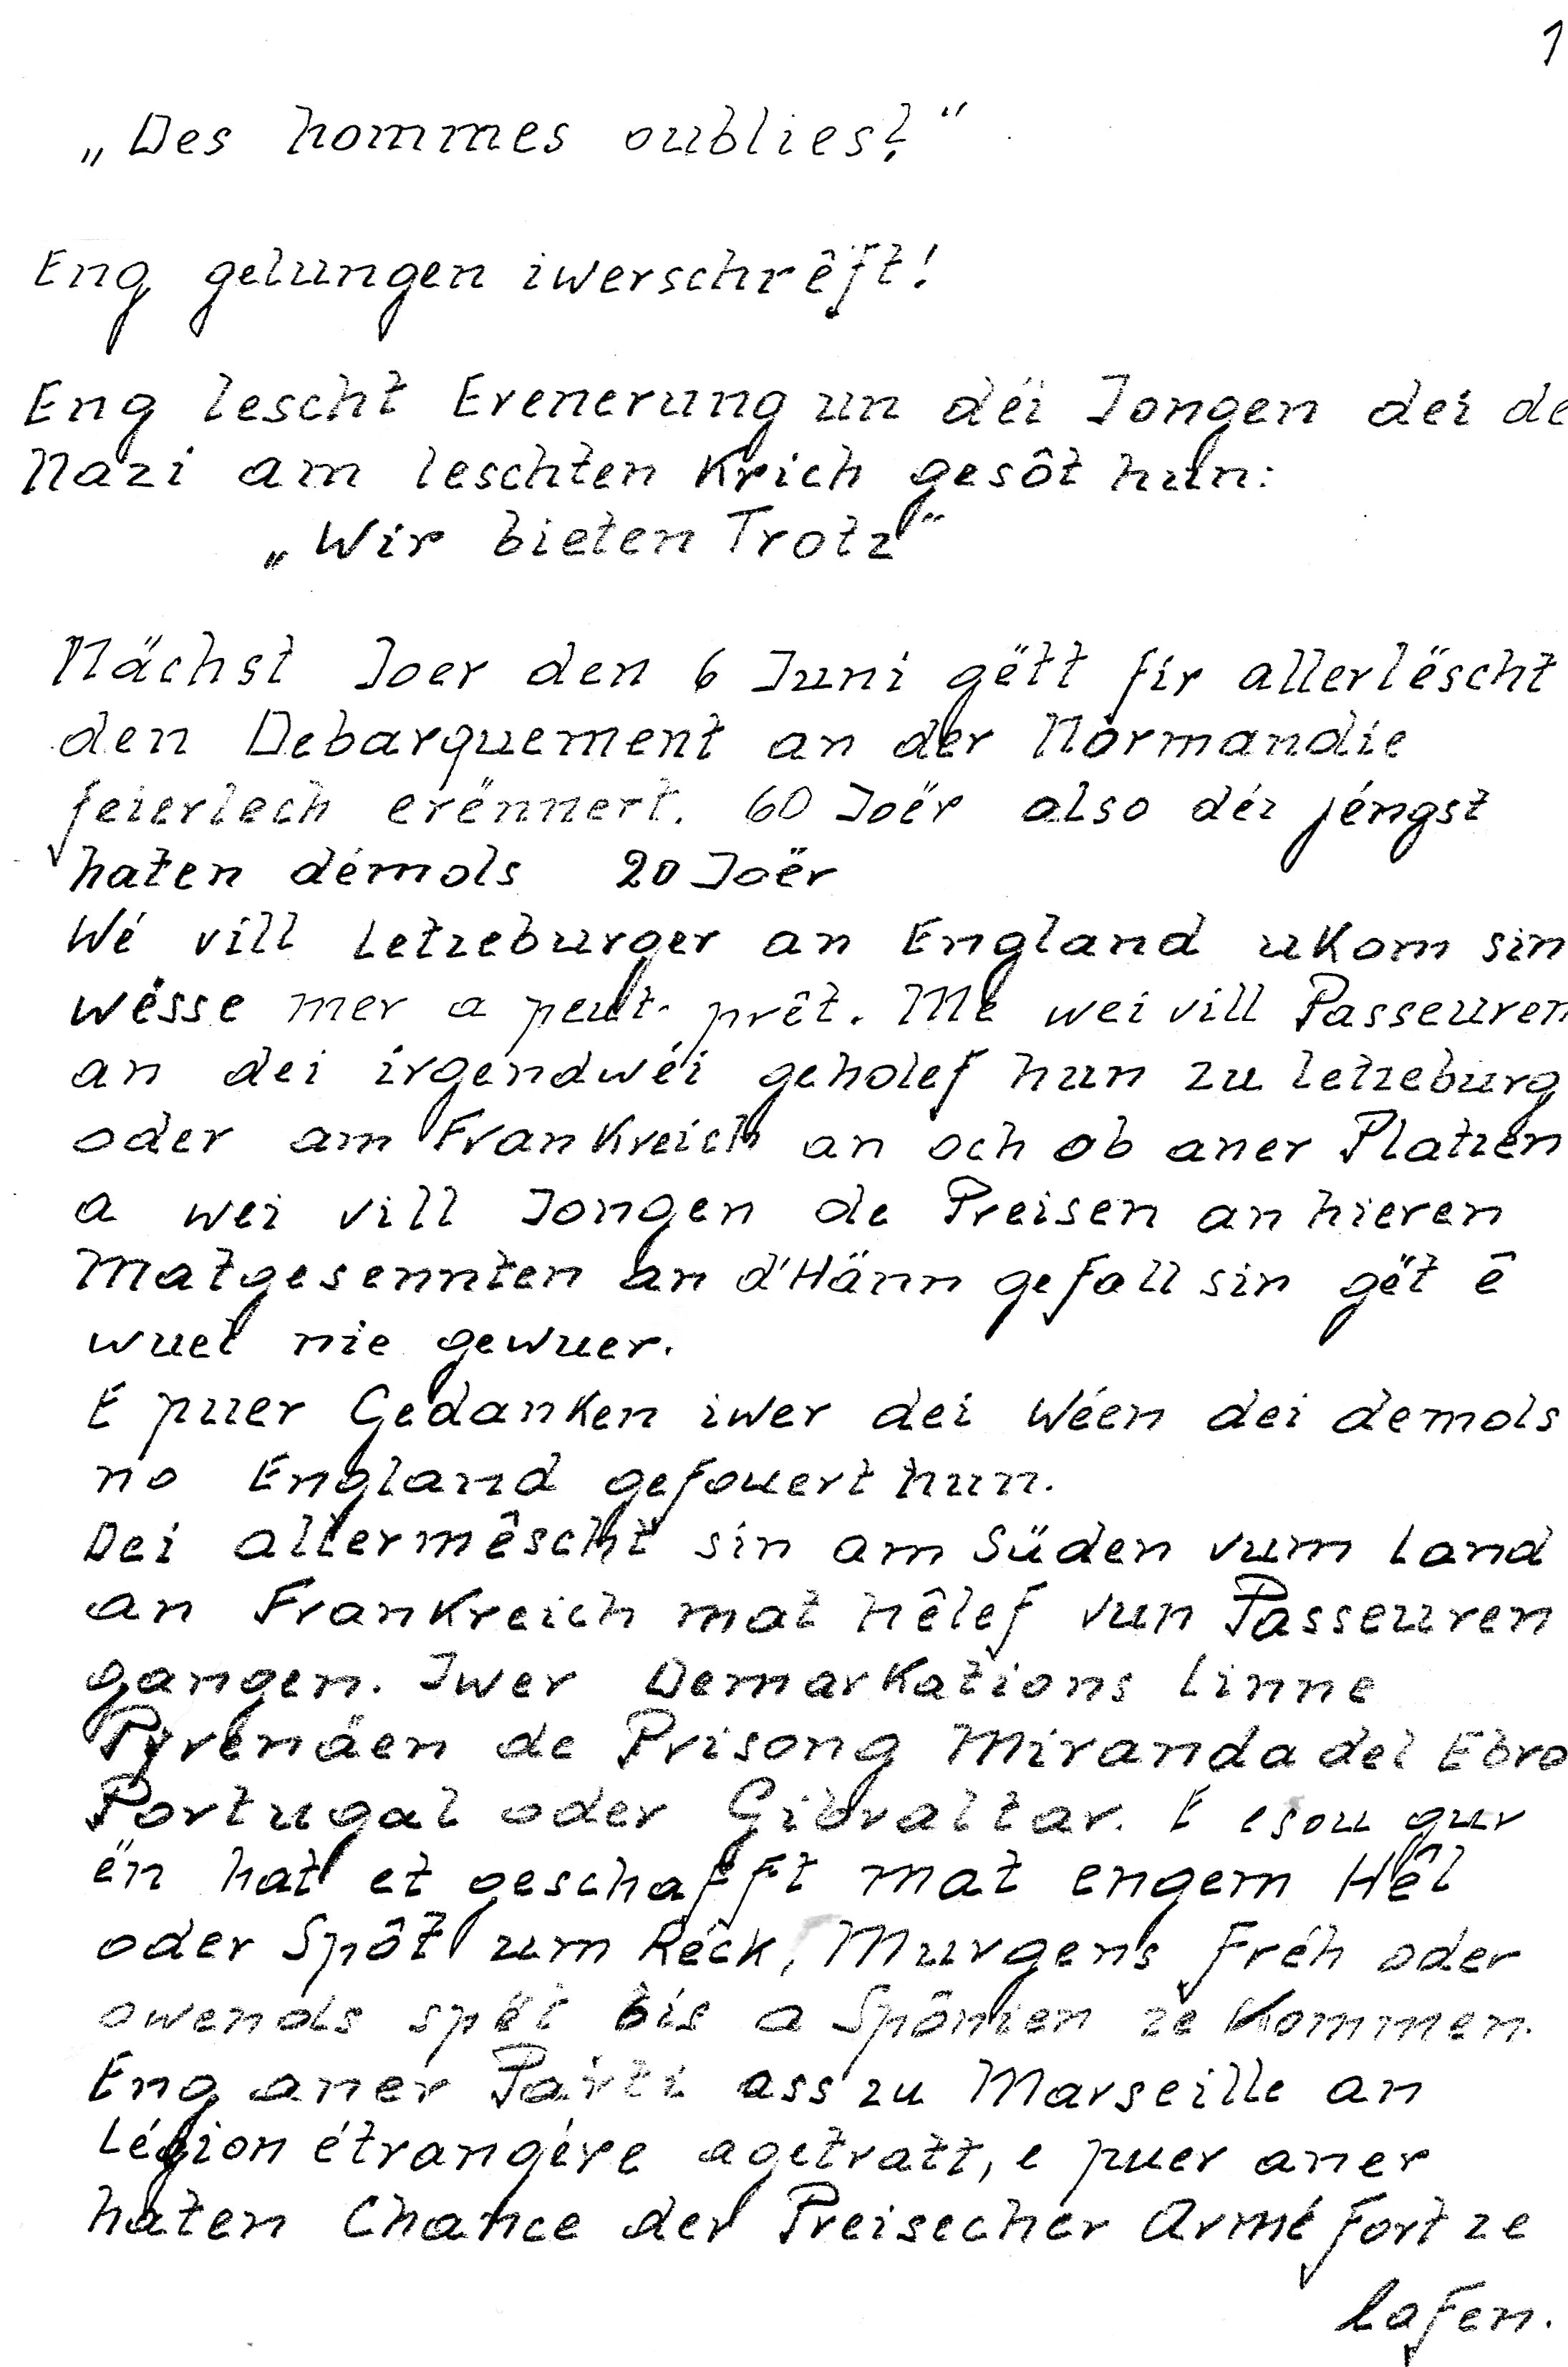 1
„Des hommes oublies?“
Eng gelungen iwerschrêft!
Eng lescht Erenerung un dëi Jongen dei de
Nazi am leschten Krich gesôt hun:
„Wir bieten Trotz“
Nächst Joer den 6 Juni gëtt fir allerlëscht
den Debarquement an der Normandie
feierlech erënnert. 60 Joër also déi jéngst
haten démols 20 Joër
Wé vill Letzeburger an England ukom sin
wésse mer a peut-prêt. Me wei vill Passeuren
an dei irgendwéi geholef hun zu Letzeburg
oder am Frankreich an och ob aner Platzen
a wei vill Jongen de Preisen an hieren
Matgesennten an d'Hänn gefall sin gët ê
wuel nie gewuer.
E puer Gedanken iwer dei Wéen dei demols
no England gefouert hun.
Dei allermêscht sin am Süden vum Land
an Frankreich mat Hêlef vun Passeuren
gangen. Iwer Demarkations Linne
Pyrenäen de Prisong Miranda del Ebro
Portugal oder Gibraltar. E esou gur
ën hat et geschafft mat engem Hêl
oder Spôt um Réck, Murgens Fréh oder
owends spét bis a Spônien ze kommen.
Eng aner Parti ass zu Marseille an
Légion étrangére agetratt, e puer aner
haten Chance der Preisecher Armé Fort ze
lafen.